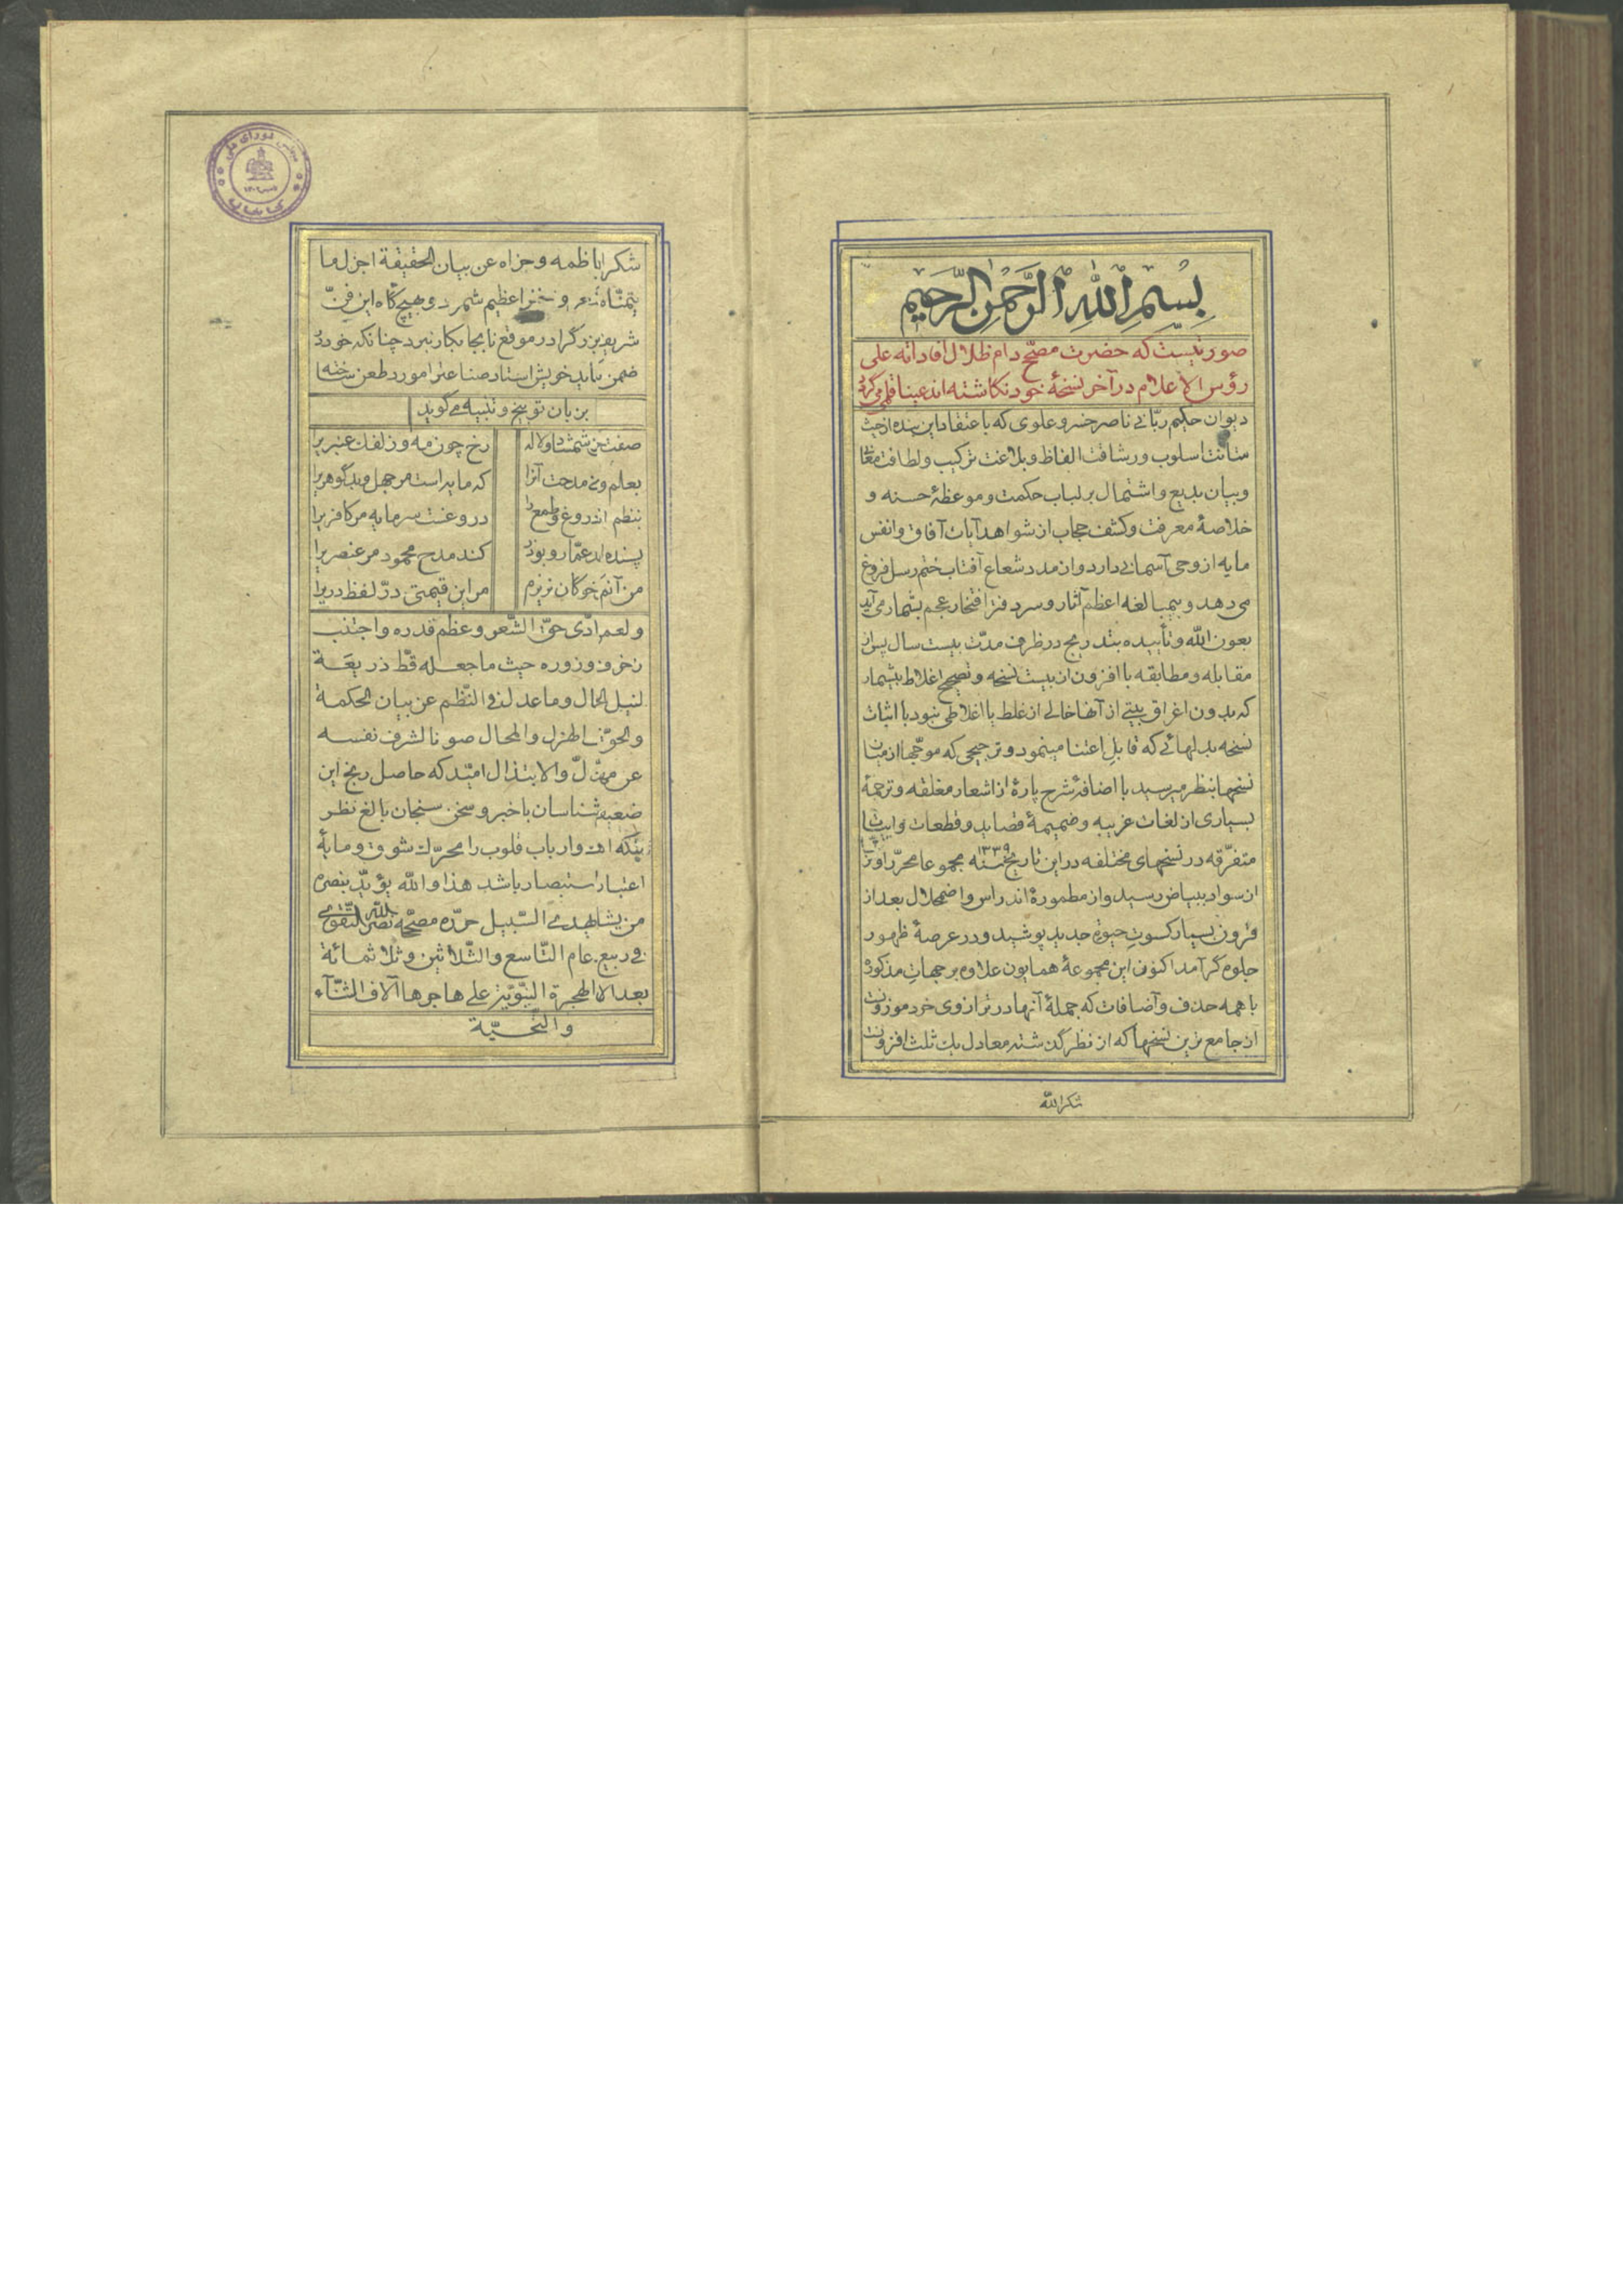 بسم الله الرحمن الرحیم
صورتیست که حضرت مصحّح دام ظلال افاداته علی
رؤس الاعلام در آخر نسخهٔ خود نگاشته‌اند عیناً قلمی گردد
دیوان حکیم ربّانی ناصر خسرو علوی که باعتقاد این بنده از حیث
متانت اسلوب و رشاقت الفاظ و بلاغت ترکیب و لطافت معانی
و بیان بدیع و اشتمال بر لباب حکمت و موعظهٔ حسنه و
خلاصهٔ معرفت و کشف حجاب از شواهد آیات آفاق و انفس
مایه از وحی آسمانی دارد و از مدد شعاع آفتاب ختم رسل فروغ
می‌دهد و بیمبالغه اعظم آثار و سر دفتر افتخار عجم بشمار می‌آید
بعون الله و تأییده بتدریج در ظرف مدّت بیست سال پس از
مقابله و مطابقه با افزون از بیست نسخه و تصحیح اغلاط بیشمار
که بدون اغراق بیتی از آنها خالی از غلط یا اغلاطی نبود با اثبات
نسخه بدلهائی که قابل اعتنا مینمود و ترجیحی که موجّهاً از میان
نسخها بنظر میرسید با اضافهٔ شرح پارهٔ از اشعار مغلقه و ترجمهٔ
بسیاری از لغات غریبه و ضمیمهٔ قصاید و قطعات و ابیات
متفرّقه در نسخهای مختلفه در این تاریخ سنه ۱۳۳۹ مجموعاً محرّراً
از سواد ببیاض رسید و از مطمورهٔ اندراس و اضمحلال بعد از
قرون بسیار کسوت حیوة جدید پوشید و در عرصهٔ ظهور
جلوه گر آمد اکنون این مجموعهٔ همایون علاوه بر جهات مذکوره
با همه حذف و اضافات که جملهٔ آنها در ترازوی خرد موزونست
از جامع ترین نسخها که از نظر گذشته معادل یک ثلث افزونست
شکر الله
شکر الله ناظمه و جزاه عن بیان الحقیقة اجزل ما
یتمنّاه شعر و سخن را عظیم شمرد و بهیچگاه این فنّ
شریف بزرگ را در موقع نابجا بکار نبرد چنانکه خود در
ضمن نباید خویش استاد صناعت را مورد طعن ساخته
بزبان توبیخ و تنبیه میگوید
صفت چن شمشاد و لاله
رخ چون مه و زلفک عنبریرا
بعلم و مدحت آنرا
که مایه است مر جهل و بدگوهریرا
بنظم اندر دروغ و طمع را
دروغست سرمایه مر کافریرا
پسنده اند عمّار و بوذر
کند مدح محمود مر عنصریرا
من آنم خوکان نریزم
مر این قیمتی درّ لفظ دریرا
و لعمری ادّی حقّ الشّعر و عظم قدره و اجتنب
زخرفه و زوره حیث ما جعله قطّ ذریعة
لنیل المال و ما عدل فی النّظم عن بیان الحکمة
والحقّ الی الهزل والمحال صوناً لشرف نفسه
عن مهزل والابتذال امّید که حاصل رنج این
ضعیف شناسان با خبر و سخن سنجان بالغ نظر
ارباب قلوب را محرّک شوق و مایهٔ
اعتبار و استبصار باشد هذا والله یؤیّد بنصره
من یشاء یهدی السّبیل حرّره مصحّحه نصر الله التّقوی
فی ربیع عام التّاسع والثّلاثین و ثلاثمائة
بعد الالف الهجرة النّبویّة علی هاجرها آلاف الثّناء
والتّحیّة
مجلس شورای ملی
کتابخانه